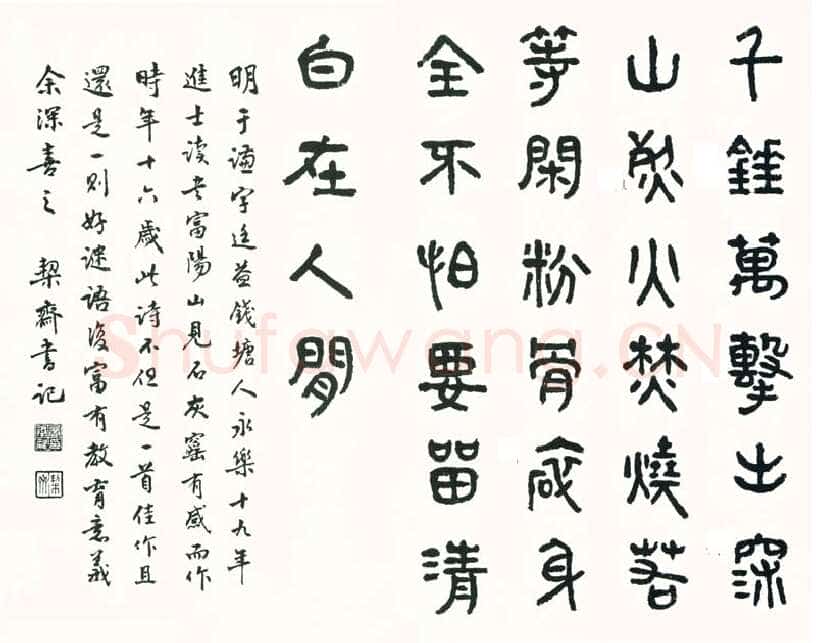 千錘萬擊出深
山烈火焚燒若
等閑粉骨碎身
全不怕要留清
白在人閒
明于謙字廷益錢塘人永樂十九年
進士讀書富陽山見石灰窰有感而作
時年十六歲此詩不但是一首佳作且
還是一則好謎語復富有教育意義
余深喜之 栔齋書記
Shufawang.CN